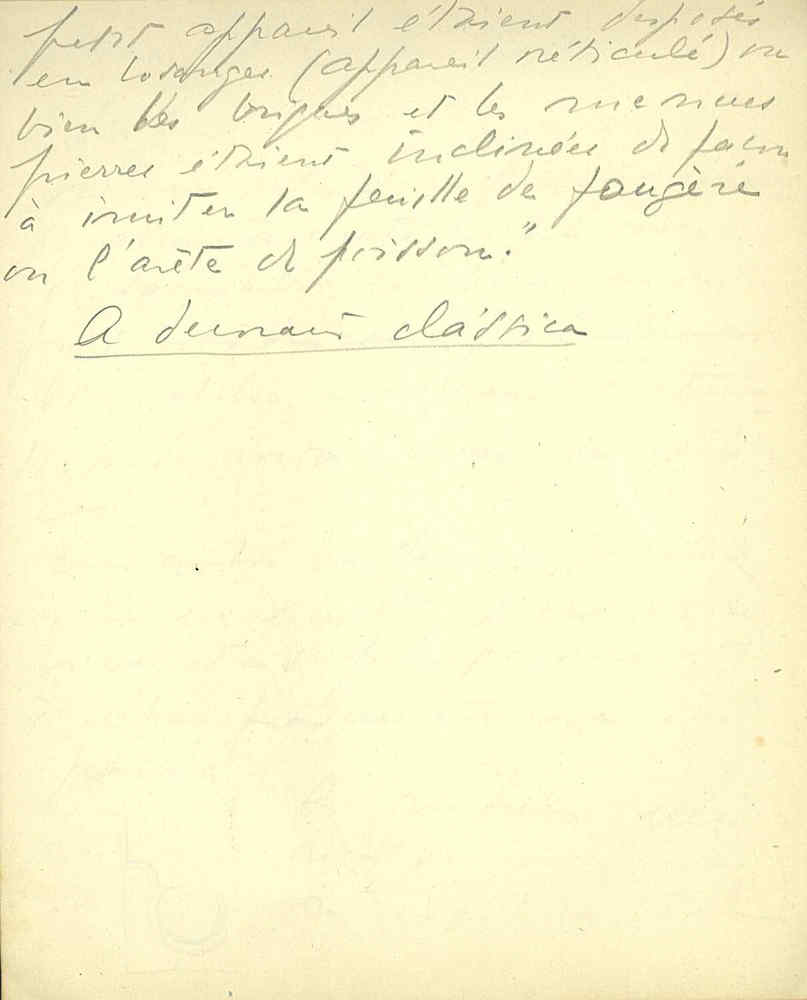 petit appareil étaient disposés
en losanges (appareil réticulé) ou
bien les briques et les menues
pierres étaient inclinées de façon
à imiter la feuille de fougère
ou l'arête de poisson."
A clássica